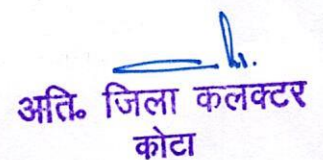 अति॰ जिला कलक्टर
कोटा